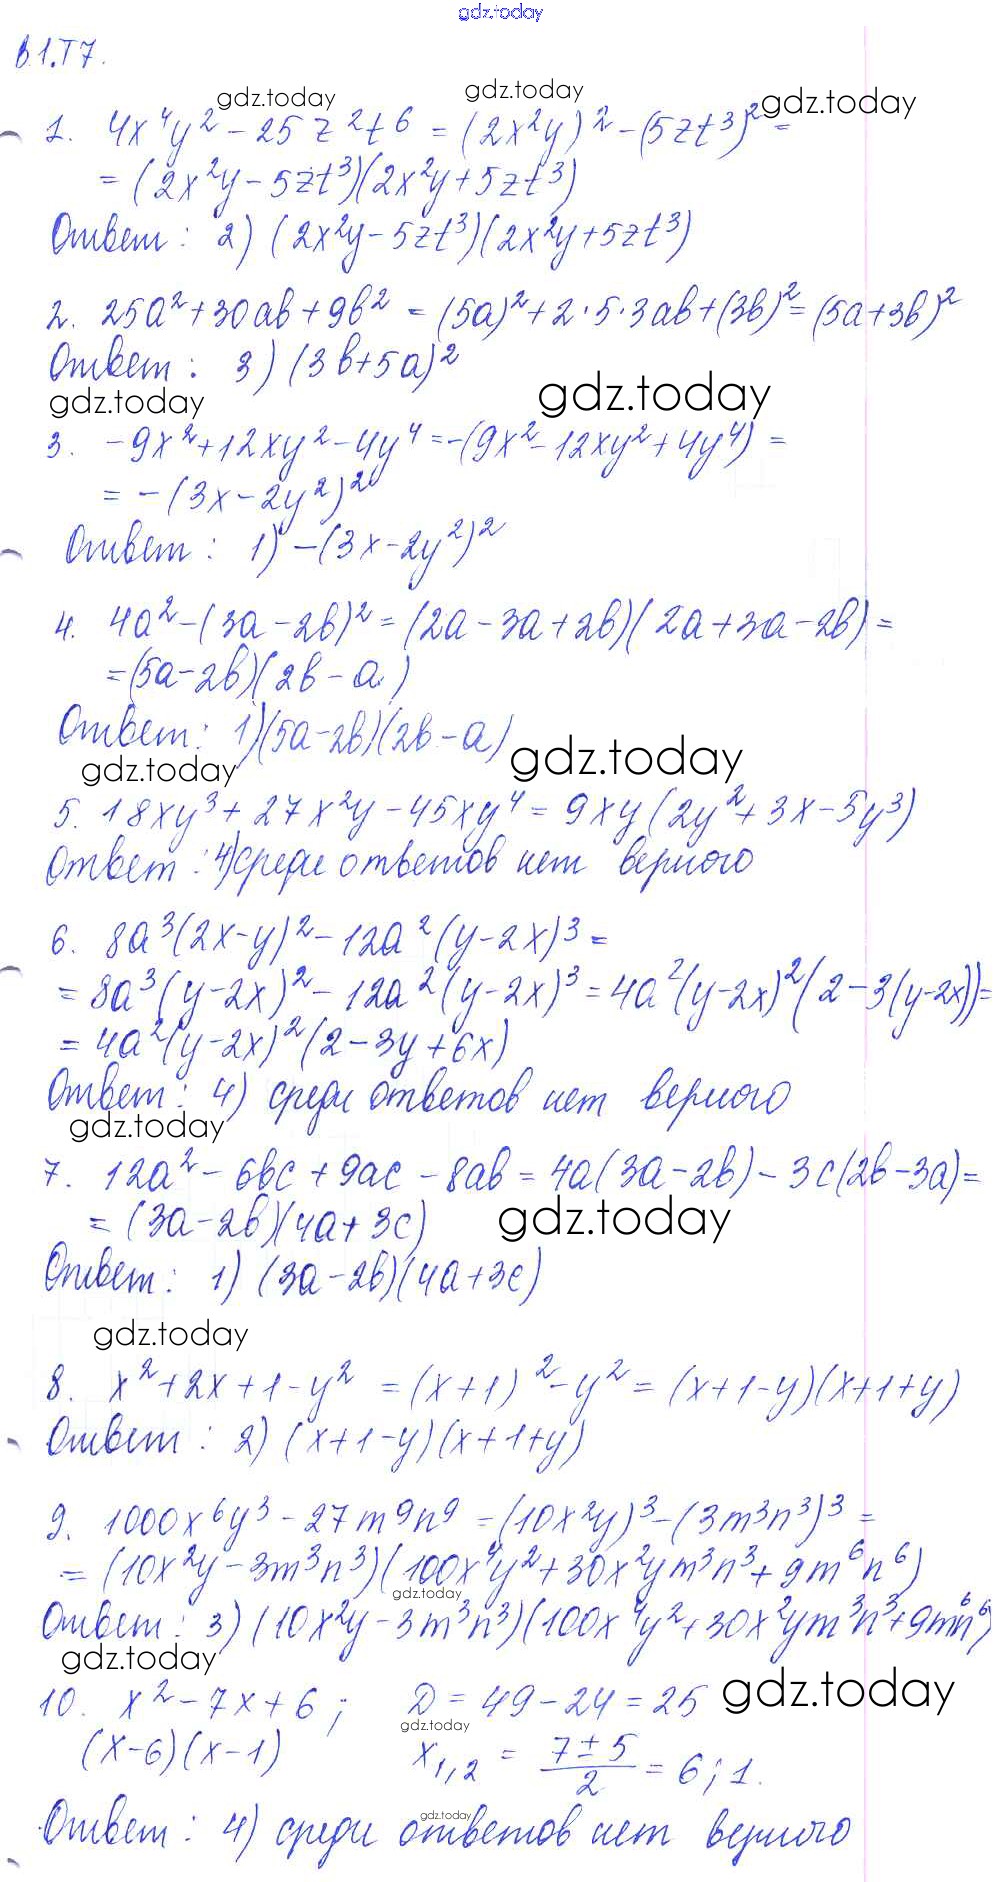 gdz.today
В.1.Т7.
gdz.today gdz.today gdz.today
1. 4x⁴y² - 25z²t⁶ = (2x²y)² - (5zt³)² =
= (2x²y - 5zt³)(2x²y + 5zt³)
Ответ: 2) (2x²y - 5zt³)(2x²y + 5zt³)
2. 25a² + 30ab + 9b² = (5a)² + 2·5·3ab + (3b)² = (5a + 3b)²
Ответ: 3) (3b + 5a)²
gdz.today gdz.today
3. -9x² + 12xy² - 4y⁴ = -(9x² - 12xy² + 4y⁴) =
= -(3x - 2y²)²
Ответ: 1) -(3x - 2y²)²
4. 4a² - (3a - 2b)² = (2a - 3a + 2b)(2a + 3a - 2b) =
= (5a - 2b)(2b - a)
Ответ: 1) (5a - 2b)(2b - a)
gdz.today gdz.today
5. 18xy³ + 27x²y - 45xy⁴ = 9xy(2y² + 3x - 5y³)
Ответ: 4) среди ответов нет верного
6. 8a³(2x - y)² - 12a²(y - 2x)³ =
= 8a³(y - 2x)² - 12a²(y - 2x)³ = 4a²(y - 2x)²(2 - 3(y - 2x)) =
= 4a²(y - 2x)²(2 - 3y + 6x)
Ответ: 4) среди ответов нет верного
gdz.today
7. 12a² - 6bc + 9ac - 8ab = 4a(3a - 2b) - 3c(2b - 3a) =
= (3a - 2b)(4a + 3c)
gdz.today
Ответ: 1) (3a - 2b)(4a + 3c)
gdz.today
8. x² + 2x + 1 - y² = (x + 1)² - y² = (x + 1 - y)(x + 1 + y)
Ответ: 2) (x + 1 - y)(x + 1 + y)
9. 1000x⁶y³ - 27m⁹n⁹ = (10x²y)³ - (3m³n³)³ =
= (10x²y - 3m³n³)(100x⁴y² + 30x²ym³n³ + 9m⁶n⁶)
gdz.today
Ответ: 3) (10x²y - 3m³n³)(100x⁴y² + 30x²ym³n³ + 9m⁶n⁶)
gdz.today gdz.today
10. x² - 7x + 6; D = 49 - 24 = 25
gdz.today
(x - 6)(x - 1) x₁,₂ = (7 ± 5)/2 = 6; 1.
gdz.today
Ответ: 4) среди ответов нет верного